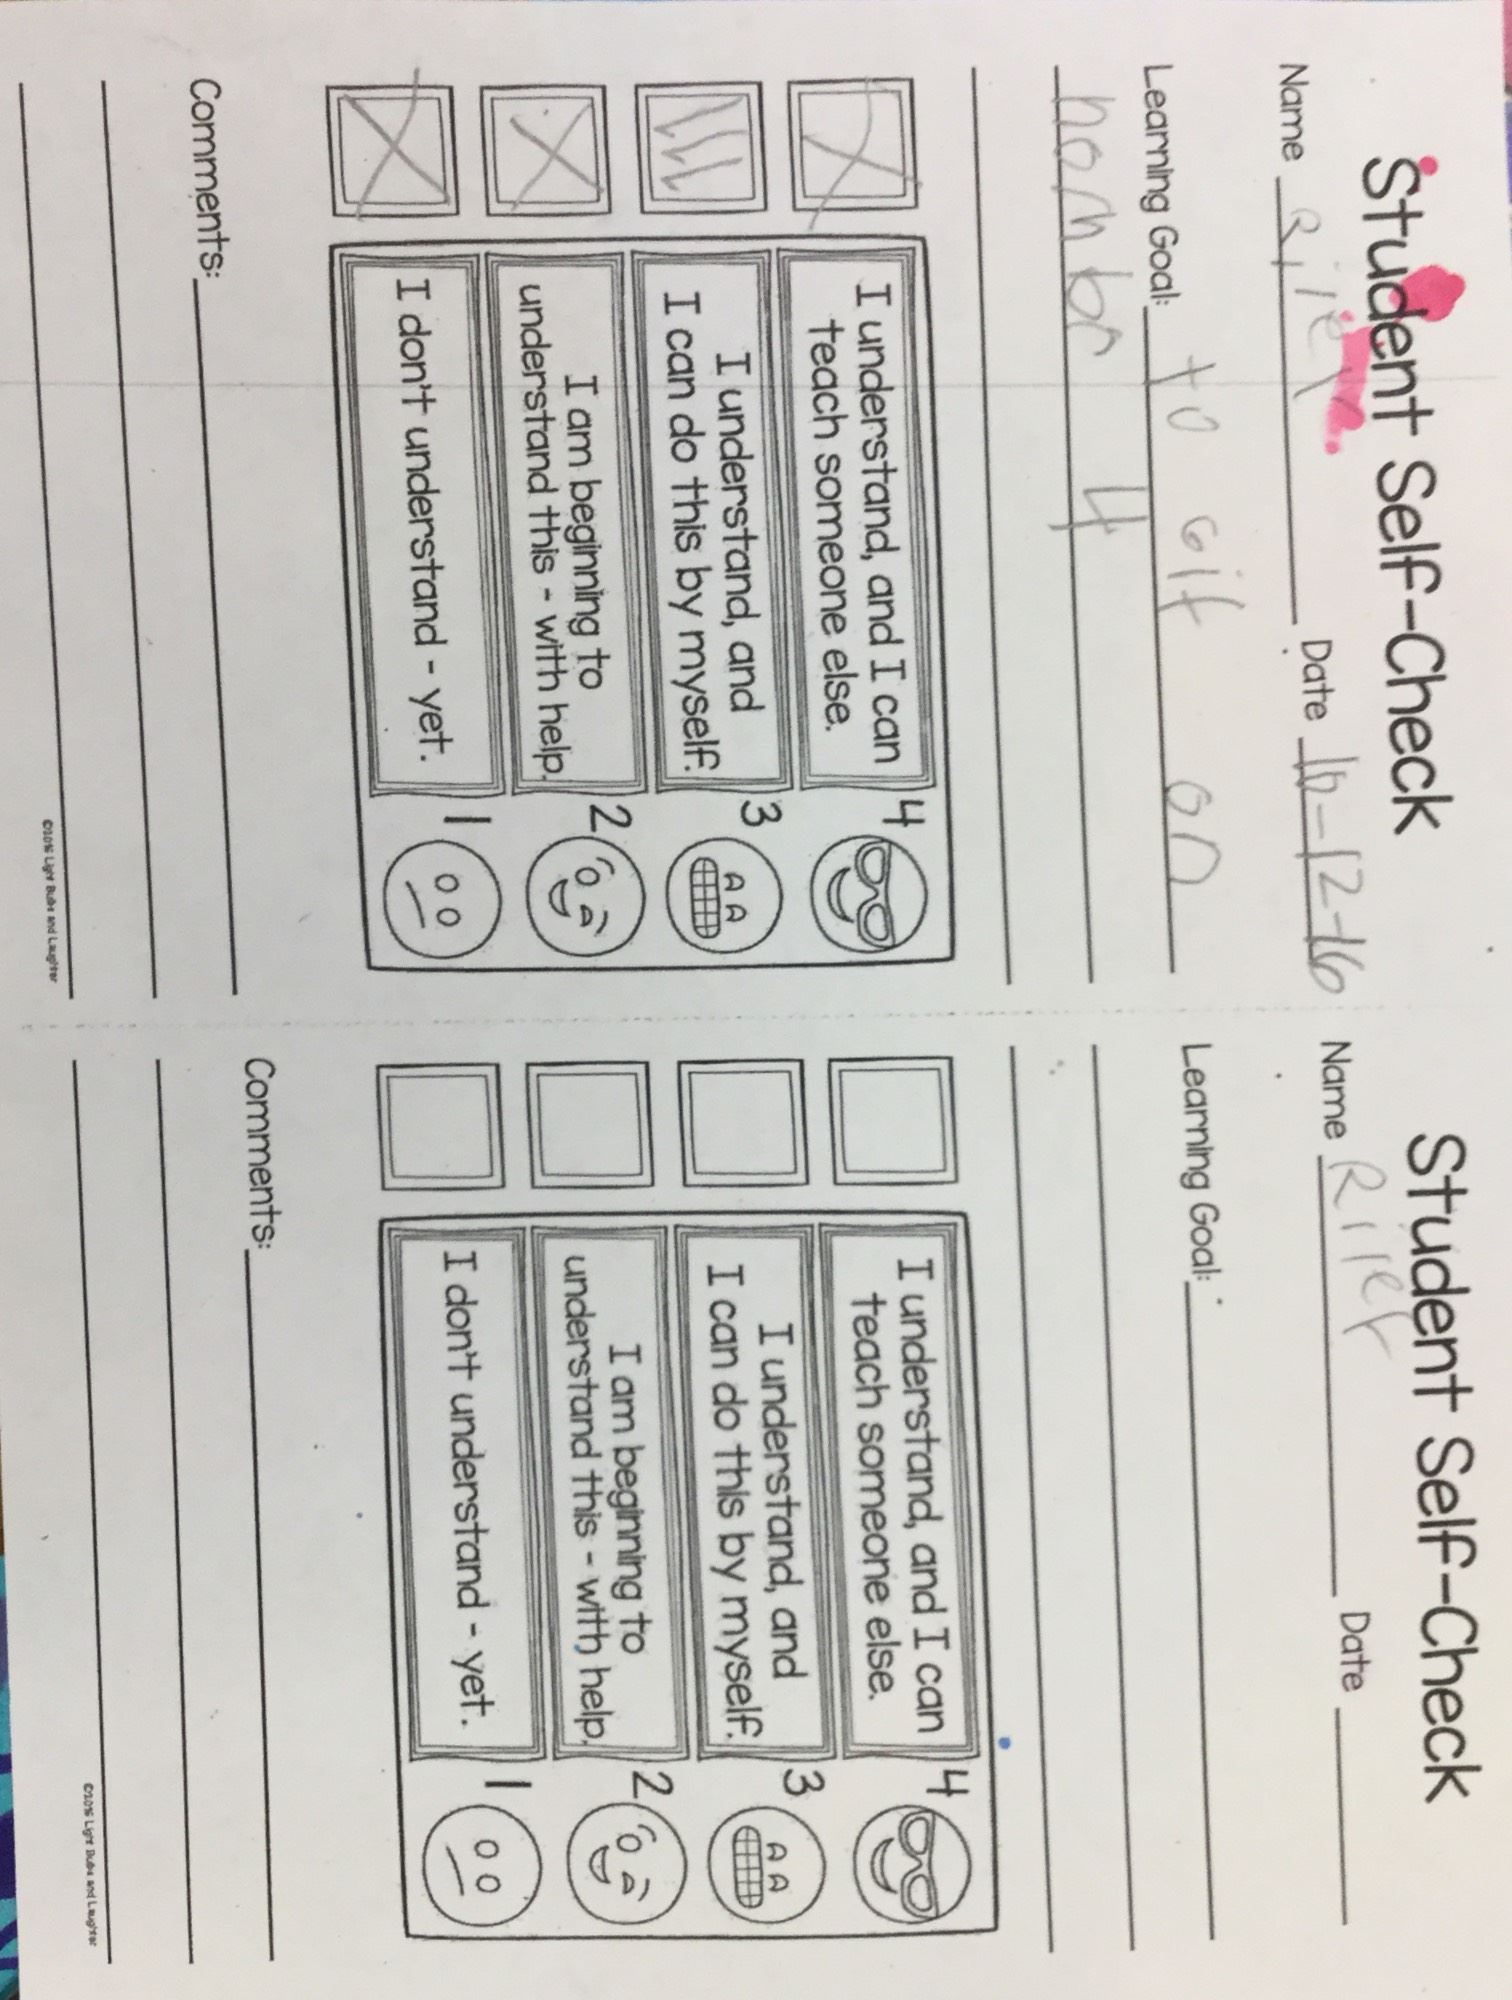 Student Self-Check
Name Riley Date 10-12-16
Learning Goal: to git on
nombr 4
I understand, and I can
teach someone else.
4
I understand, and
I can do this by myself.
3
I am beginning to
understand this - with help.
2
I don't understand - yet.
1
Comments:
©2016 Light Bulbs and Laughter
Student Self-Check
Name Riley Date
Learning Goal:
I understand, and I can
teach someone else.
4
I understand, and
I can do this by myself.
3
I am beginning to
understand this - with help.
2
I don't understand - yet.
1
Comments:
©2016 Light Bulbs and Laughter